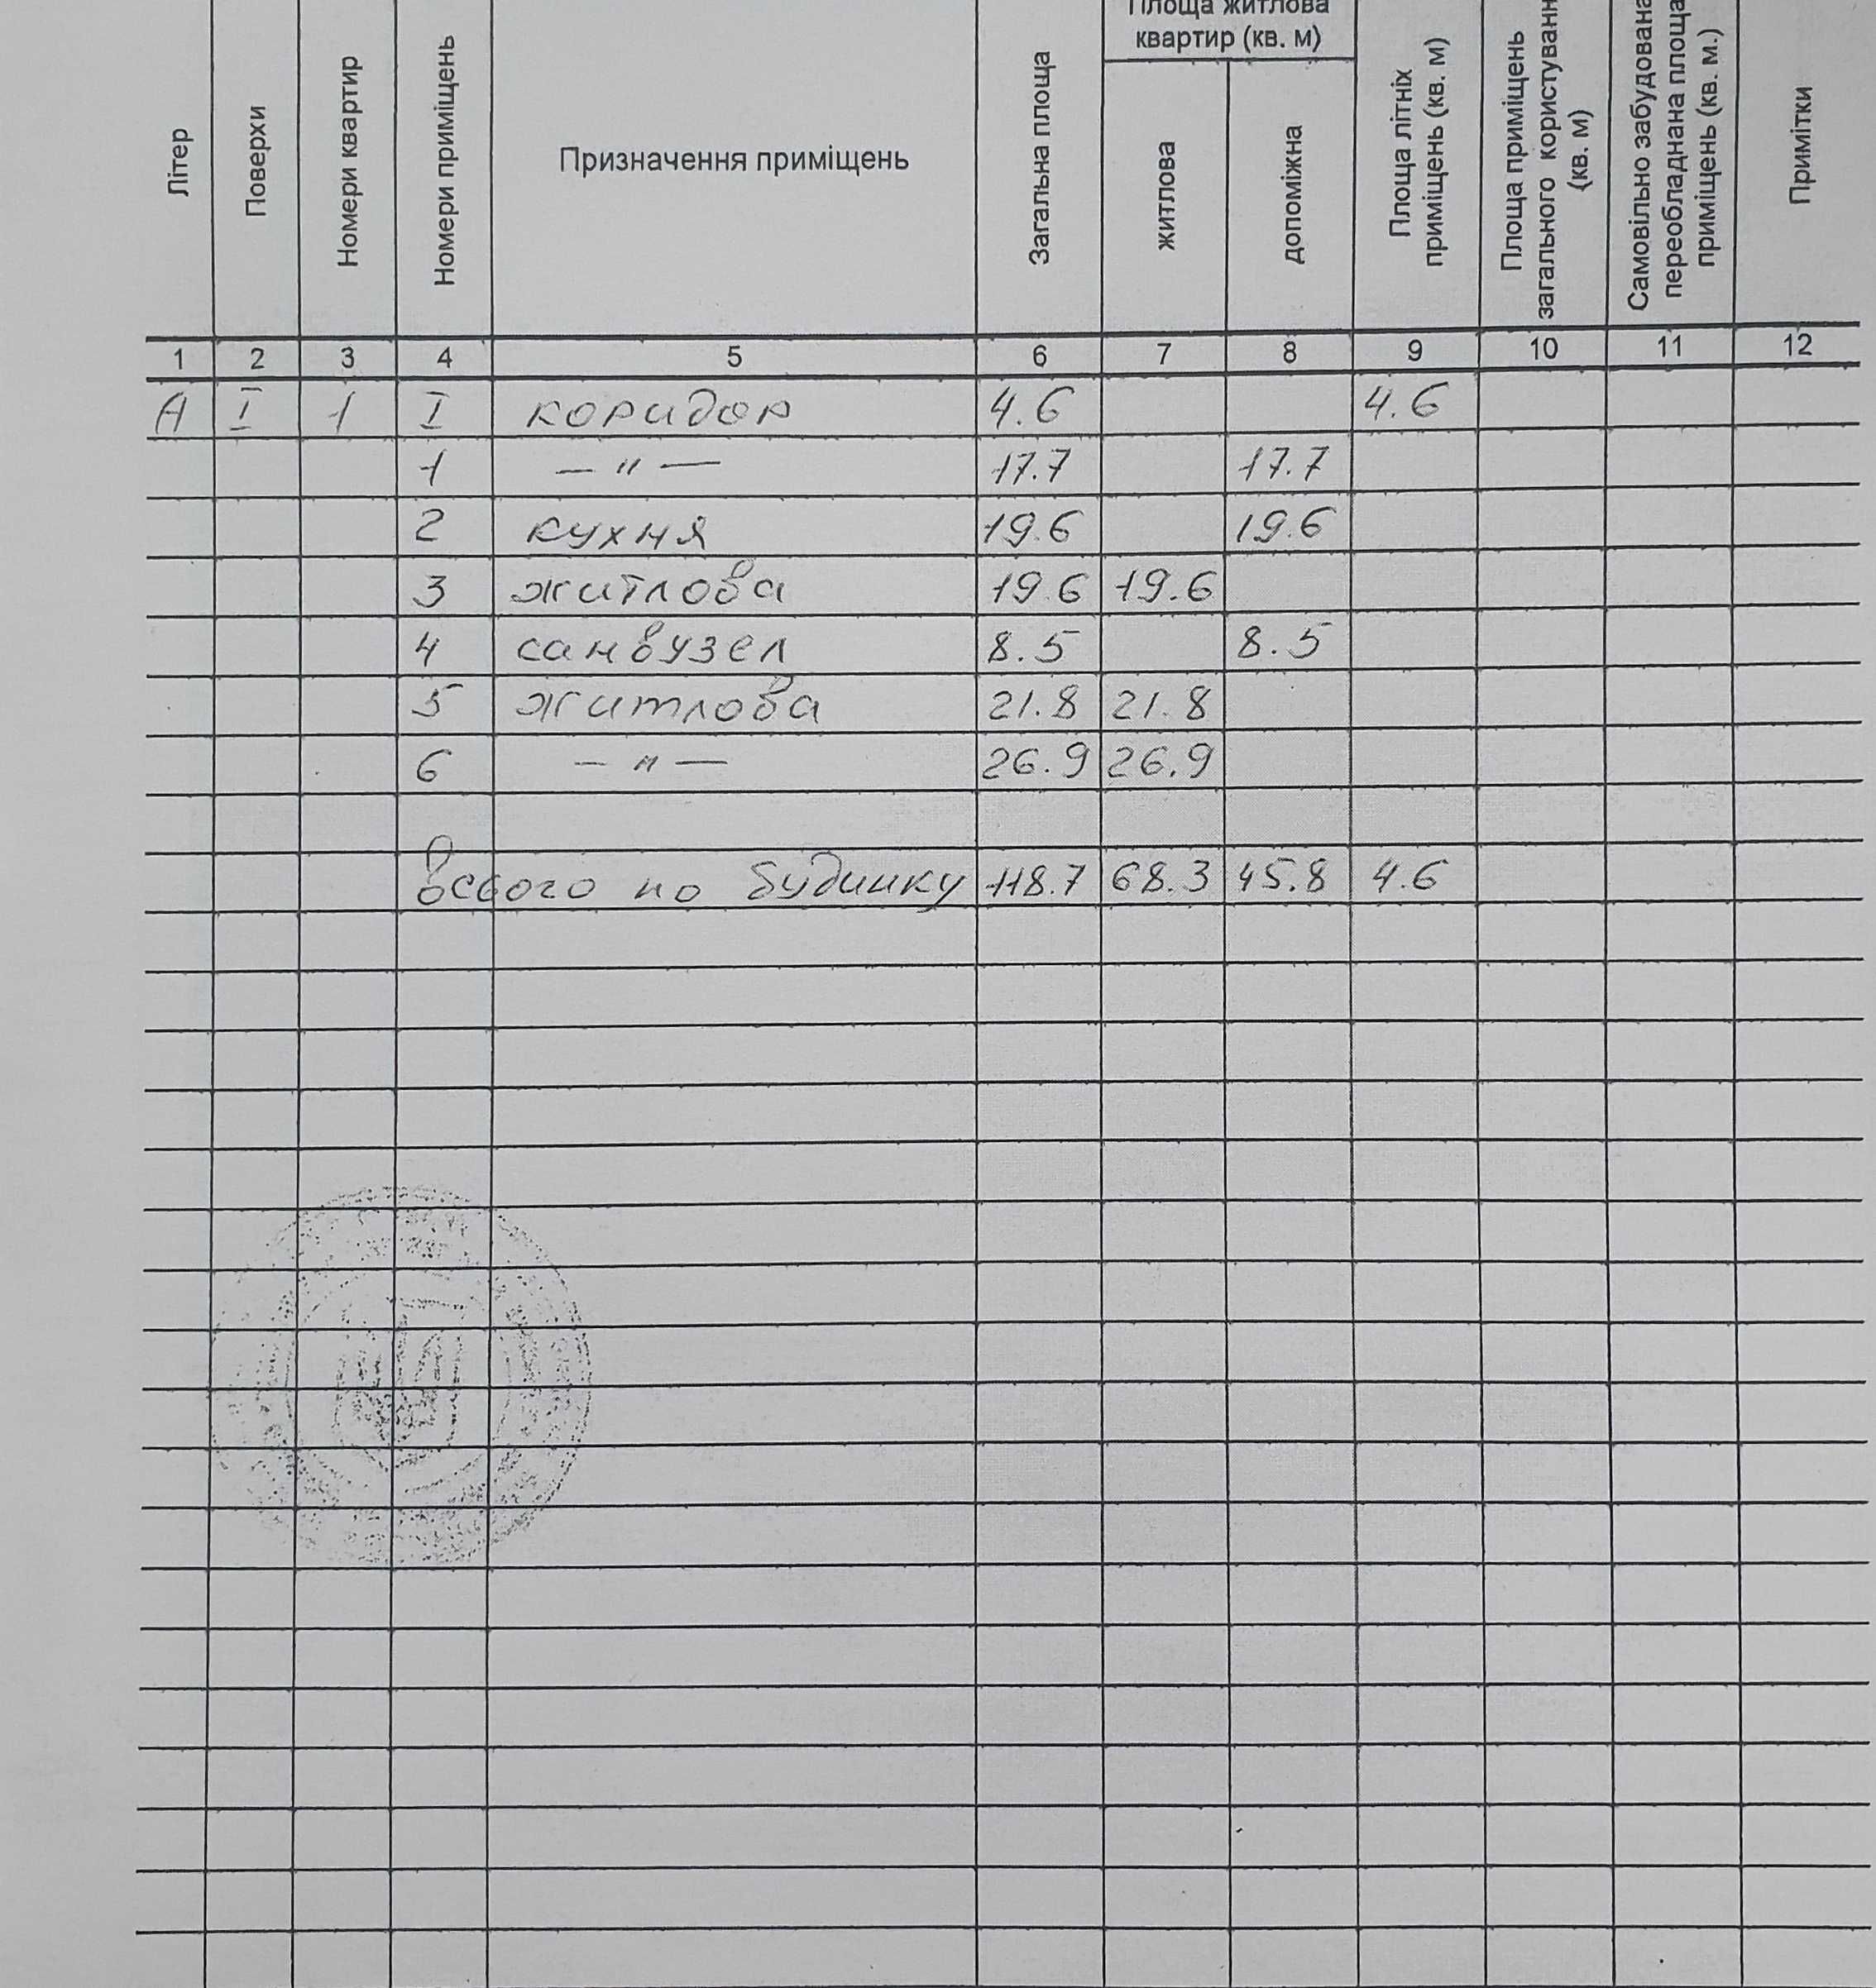 Площа житлова
квартир (кв. м)
Літер
Поверхи
Номери квартир
Номери приміщень
Призначення приміщень
Загальна площа
житлова
допоміжна
Площа літніх
приміщень (кв. м)
Площа приміщень
загального користуванн
(кв. м)
Самовільно забудована
переобладнана площа
приміщень (кв. м.)
Примітки
1 2 3 4 5 6 7 8 9 10 11 12
А I 1 I коридор 4.6 4.6
1 — " — 17.7 17.7
2 кухня 19.6 19.6
3 житлова 19.6 19.6
4 санвузел 8.5 8.5
5 житлова 21.8 21.8
6 — " — 26.9 26.9
Всього по будинку 118.7 68.3 45.8 4.6